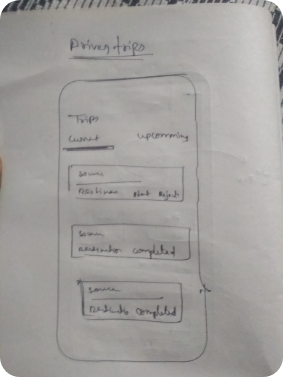 Driver trips
Trips
Current upcomming
Source
Destination Start Reject
Source
Destination completed
Source
Destinatio completed